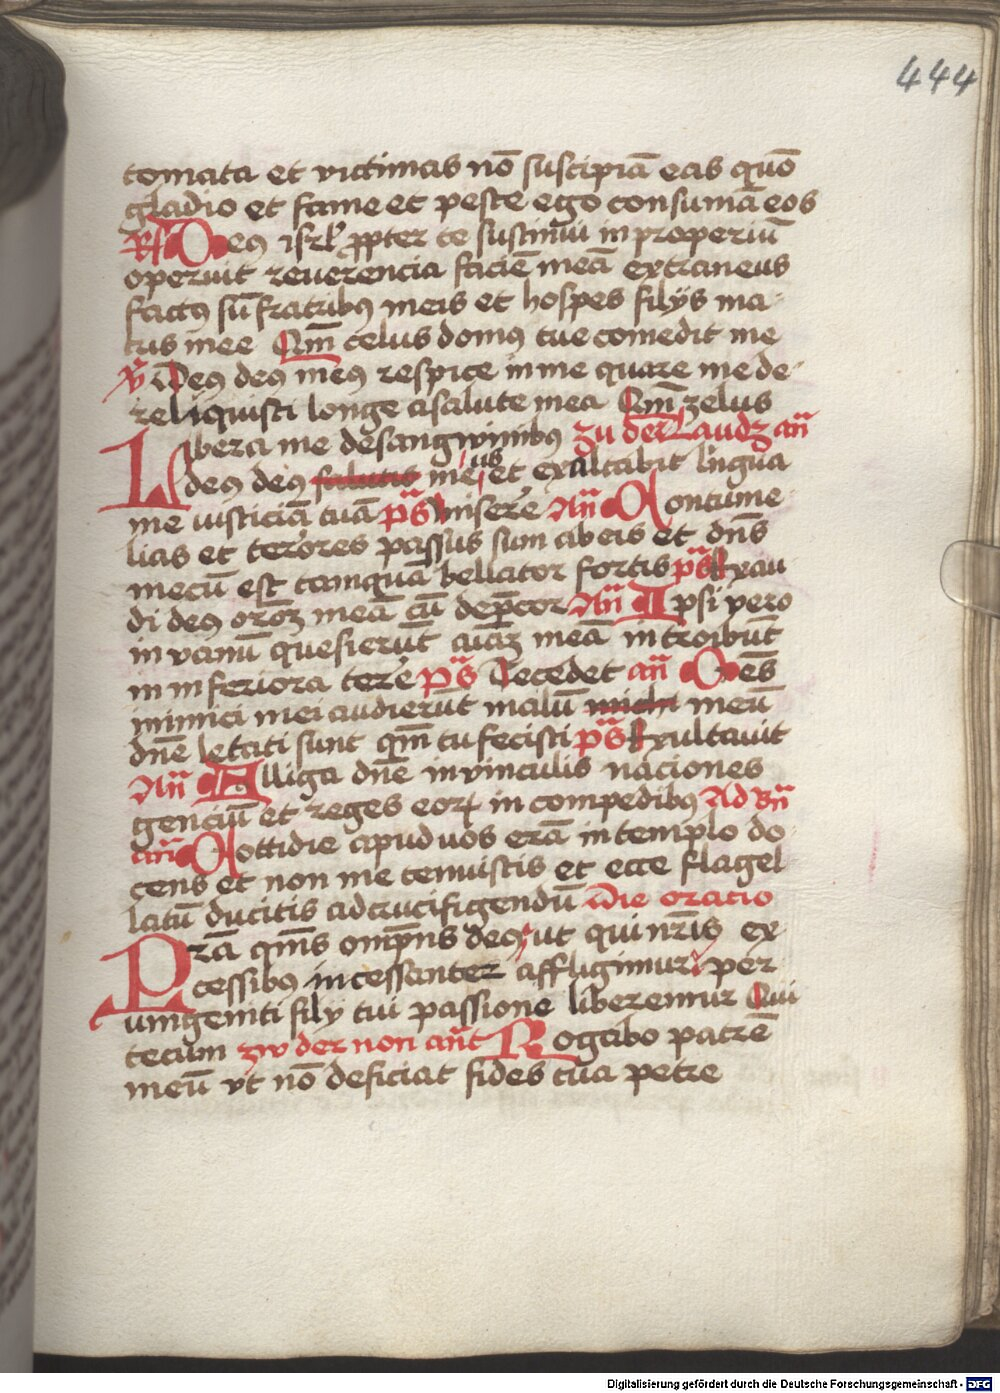 444
tomata et victimas nō suscipiā eas quō
gladio et fame et peste ego consumā eos
R Deꝯ isrl̄ ꝓpter te sustinui inproperiū
operuit reuerencia faciē meā extraneus
factꝯ sū fratribꝯ meis et hospes filÿs ma
tris mee Qm̄ celus domꝯ tue comedit me
V Deꝯ deꝯ meꝯ respice in me quare me de
reliquisti longe a salute mea Qm̄ zelus
Libera me de sangwinibꝯ zu der Laudz an̄
deꝯ deꝯ salutis me us et exaltabit lingua
me iusticiā tuā ps̄ Miserē An̄ Contume
lias et terrores passus sum ab eis et dn̄s
mecū est tamquā bellator fortis ps̄ Exau
di deꝯ orōꝫ meā cū dep̄cor An̄ Ipsi vero
in vanū quesierūt aīaꝫ meā introibūt
in inferiora terē ps̄ Decedet an̄ Oēs
inimici mei audierūt malū michi meū
dn̄e letati sunt qm̄ tu fecisti ps̄ Exultauit
An̄ Alliga dn̄e in vinculis naciones
genciū et reges eoꝝ in compedibꝯ Ad Bn̄
an̄ Cottidie apud uos erā in templo do
cens et non me tenuistis et ecce flagel
latū ducitis ad crucifigendū Die oratio
Prā qms̄ omp̄ns deꝯ ut qui nr̄is ex
cessibꝯ incessanter affligimur per
unigeniti filÿ tui passione liberemur Qui
tecum zw der non an̄t Rogabo patrē
meū vt nō deficiat fides tua petre
Digitalisierung gefördert durch die Deutsche Forschungsgemeinschaft - DFG